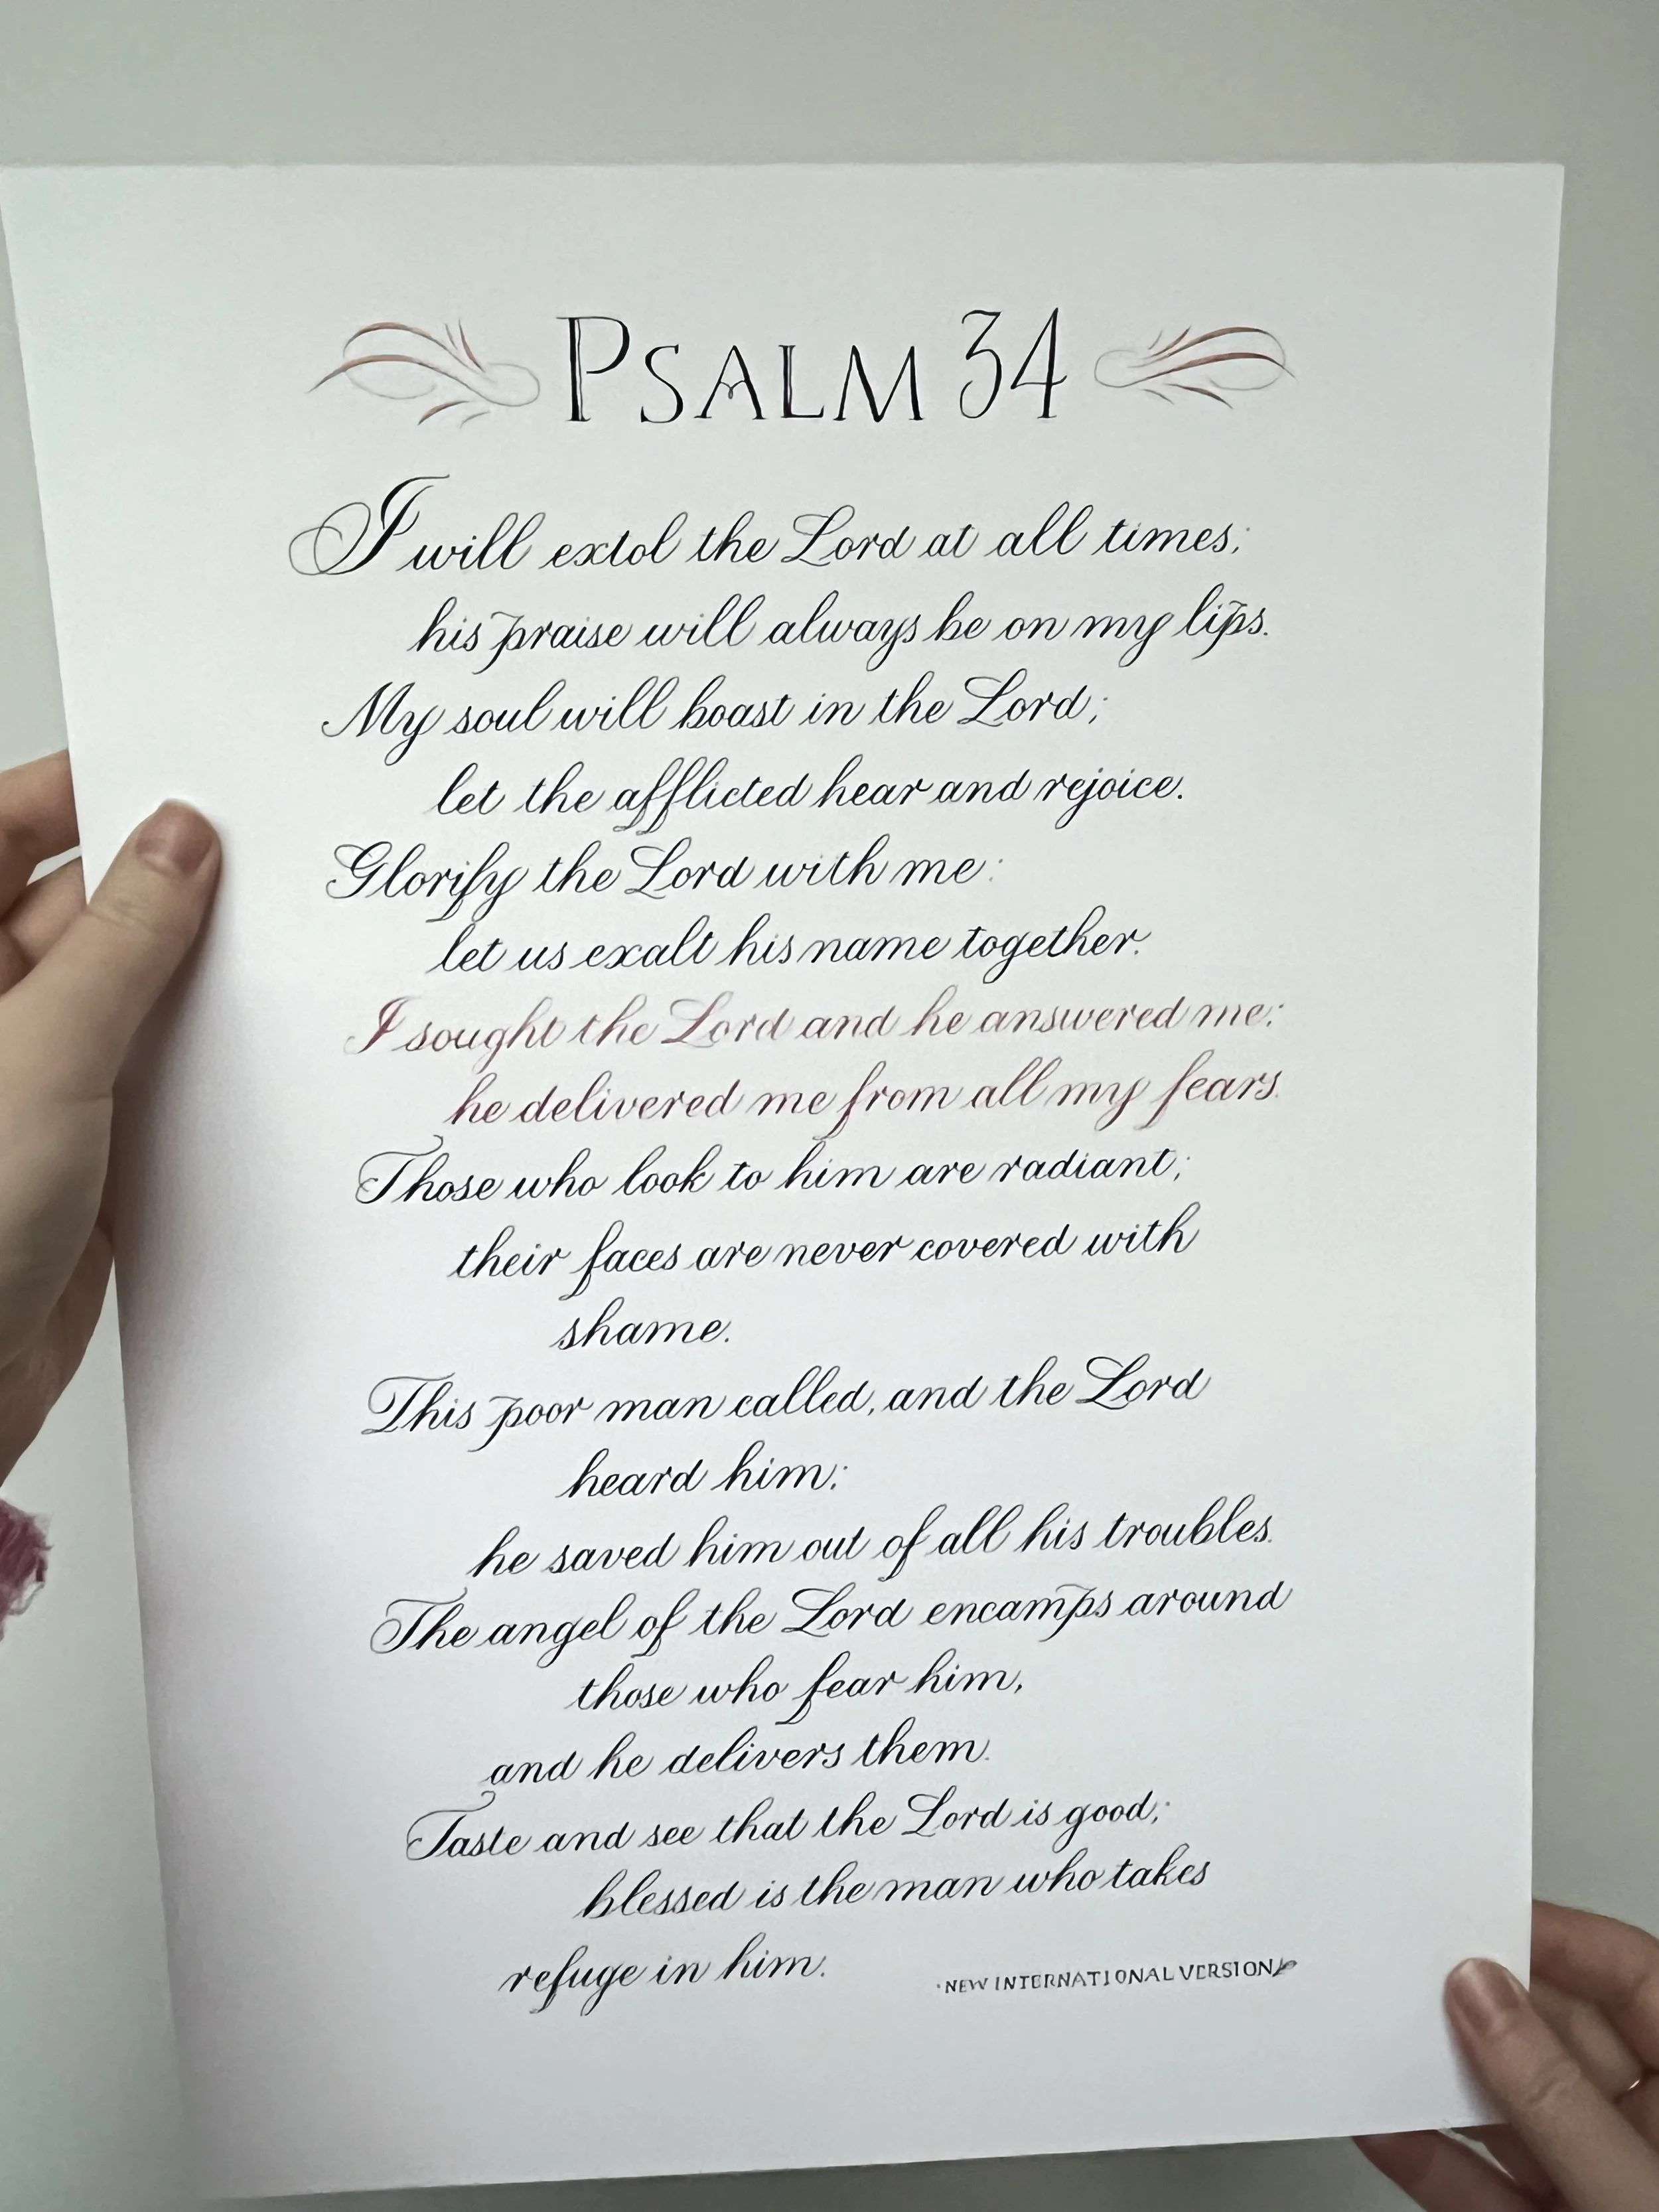 PSALM 34
I will extol the Lord at all times;
his praise will always be on my lips.
My soul will boast in the Lord;
let the afflicted hear and rejoice.
Glorify the Lord with me:
let us exalt his name together.
I sought the Lord and he answered me;
he delivered me from all my fears.
Those who look to him are radiant;
their faces are never covered with
shame.
This poor man called, and the Lord
heard him;
he saved him out of all his troubles.
The angel of the Lord encamps around
those who fear him,
and he delivers them.
Taste and see that the Lord is good;
blessed is the man who takes
refuge in him.
·NEW INTERNATIONAL VERSION